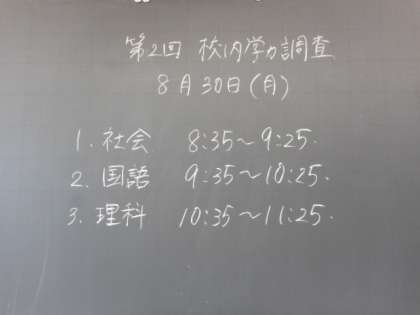 第2回 校内学力調査
8月30日(月)
1. 社会 8:35〜9:25.
2. 国語 9:35〜10:25.
3. 理科 10:35〜11:25.